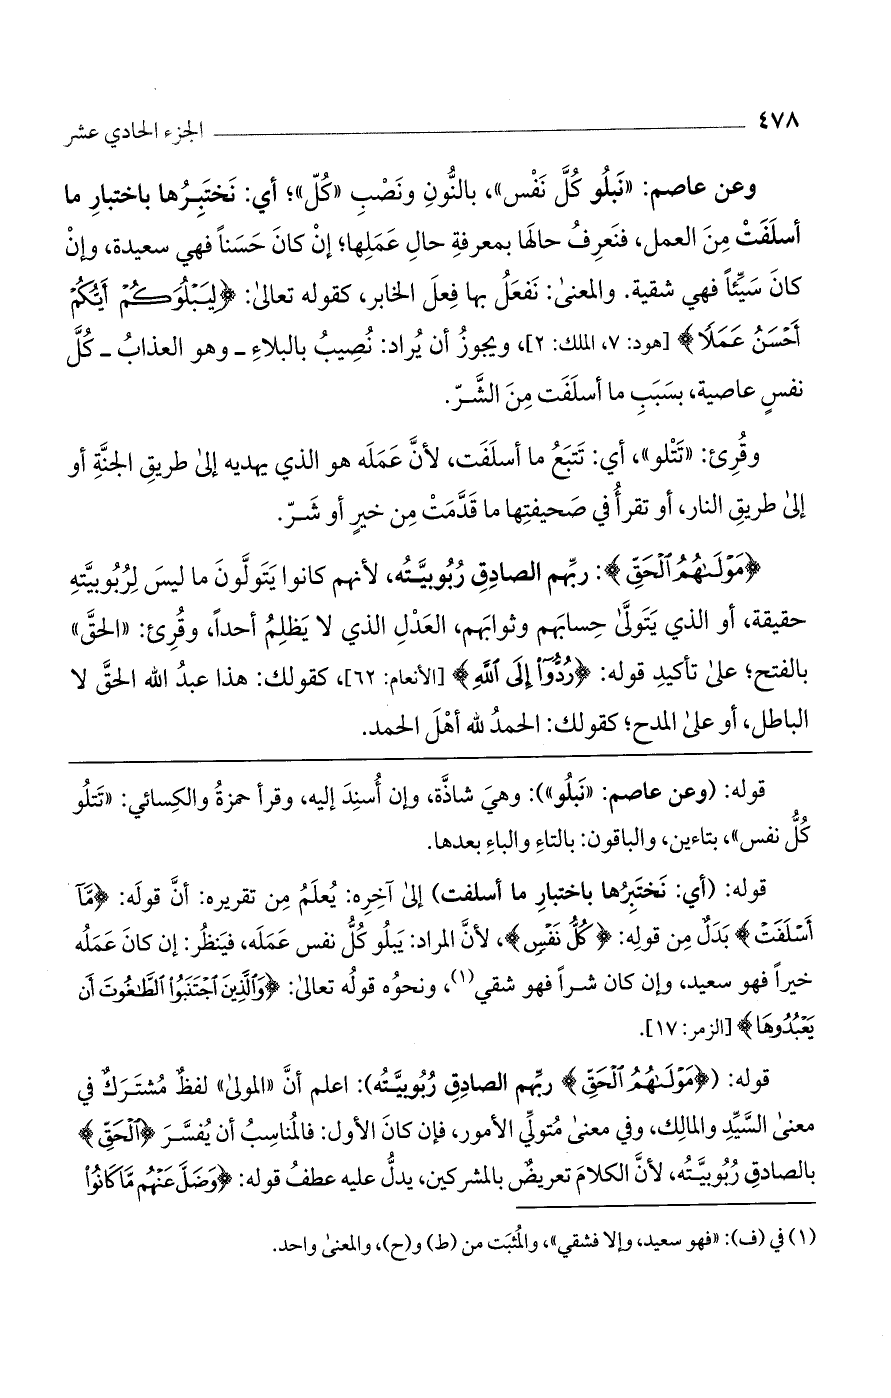 ٤٧٨ ـــــــ الجزء الحادي عشر
وعن عاصم: «نَبلُو كُلَّ نَفْس»، بالنُّونِ ونَصْبِ «كُلّ»؛ أي: نَختَبِرُها باختبارِ ما
أسلَفَتْ مِنَ العمل، فنَعرِفُ حالَها بمعرفةِ حالِ عَمَلِها؛ إنْ كانَ حَسَناً فهي سعيدة، وإنْ
كانَ سَيِّئاً فهي شقية. والمعنىٰ: نَفعَلُ بها فِعلَ الخابر، كقوله تعالىٰ: ﴿لِيَبْلُوَكُمْ أَيُّكُمْ
أَحْسَنُ عَمَلًا﴾ [هود: ٧، الملك: ٢]، ويجوزُ أن يُراد: نُصِيبُ بالبلاءِ ـ وهو العذابُ ـ كُلَّ
نفسٍ عاصية، بسَبَبِ ما أسلَفَت مِنَ الشَّرّ.
وقُرِئ: «تَتْلو»، أي: تَتبَعُ ما أسلَفَت، لأنَّ عَمَلَه هو الذي يهديه إلىٰ طريقِ الجنَّةِ أو
إلىٰ طريقِ النار، أو تقرأُ في صَحيفتِها ما قَدَّمَتْ مِن خيرٍ أو شَرّ.
﴿مَوْلَىٰهُمُ ٱلْحَقِّ﴾: ربِّهم الصادِقِ رُبُوبيَّتُه، لأنهم كانوا يَتَولَّونَ ما ليسَ لِرُبُوبيَّتِهِ
حقيقة، أو الذي يَتَولَّىٰ حِسابَهم وثوابَهم، العَدْلِ الذي لا يَظلِمُ أحداً، وقُرِئ: «الحقَّ»
بالفتح؛ علىٰ تأكيدِ قوله: ﴿رُدُّوٓا۟ إِلَى ٱللَّهِ﴾ [الأنعام: ٦٢]، كقولك: هذا عبدُ الله الحقَّ لا
الباطل، أو علىٰ المدح؛ كقولك: الحمدُ لله أهْلَ الحمد.
قوله: (وعن عاصم: «نَبلُو»): وهيَ شاذَّة، وإن أُسنِدَ إليه، وقرأ حمزةُ والكِسائي: «تَتلُو
كُلُّ نفس»، بتاءين، والباقون: بالتاءِ والباءِ بعدها.
قوله: (أي: نَختَبِرُها باختبارِ ما أسلفت) إلىٰ آخِرِه: يُعلَمُ مِن تقريره: أنَّ قولَه: ﴿مَّآ
أَسْلَفَتْ﴾ بَدَلٌ مِن قولِه: ﴿كُلُّ نَفْسٍ﴾، لأنَّ المراد: يَبلُو كُلُّ نفس عَمَلَه، فيَنظُر: إن كانَ عَمَلُه
خيراً فهو سعيد، وإن كان شراً فهو شقي(١)، ونحوُه قولُه تعالىٰ: ﴿وَٱلَّذِينَ ٱجْتَنَبُوا۟ ٱلطَّٰغُوتَ أَن
يَعْبُدُوهَا﴾ [الزمر: ١٧].
قوله: (﴿مَوْلَىٰهُمُ ٱلْحَقِّ﴾ ربِّهم الصادِقِ رُبُوبيَّتُه): اعلم أنَّ «المولىٰ» لفظٌ مُشتَرَكٌ في
معنىٰ السَّيِّدِ والمالِك، وفي معنىٰ مُتولِّي الأمور، فإن كانَ الأول: فالمُناسِبُ أن يُفسَّرَ ﴿ٱلْحَقِّ﴾
بالصادِقِ رُبُوبيَّتُه، لأنَّ الكلامَ تعريضٌ بالمشركين، يدلُّ عليه عطفُ قوله: ﴿وَضَلَّ عَنْهُم مَّا كَانُوا۟
(١) في (ف): «فهو سعيد، وإلا فشقي»، والمُثبَت من (ط) و(ح)، والمعنىٰ واحد.